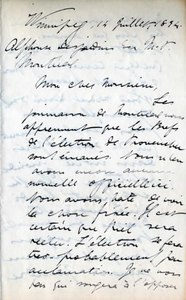 Winnipeg, 14 Juillet, 1874
Alphonse Desjardins, M.P.
Montréal
Mon cher Monsieur,
Les
journaux de Montréal nous
apprennent que les brefs
de l'élection de Provencher
sont émanés. Nous n'en
avons aucune
nouvelle officielle.
Nous avons hâte de voir
la chose fixée. Il est
certain que Riel sera
réélu. L'élection se fera
très probablement, par
acclamation. Je ne vois
pas qui songera à s'opposer